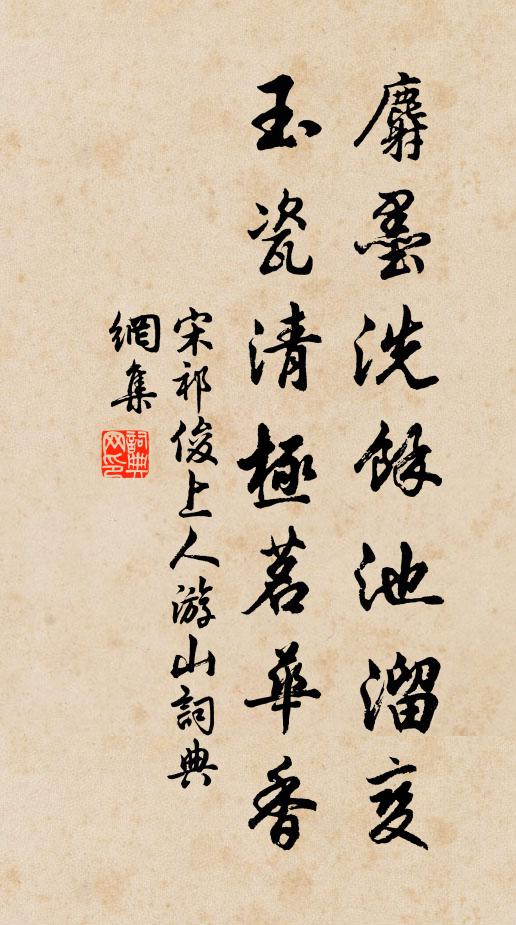 麝墨洗餘池溜变
玉瓷清極茗華香
宋祁俊上人游山詞典
網集
詞典網印